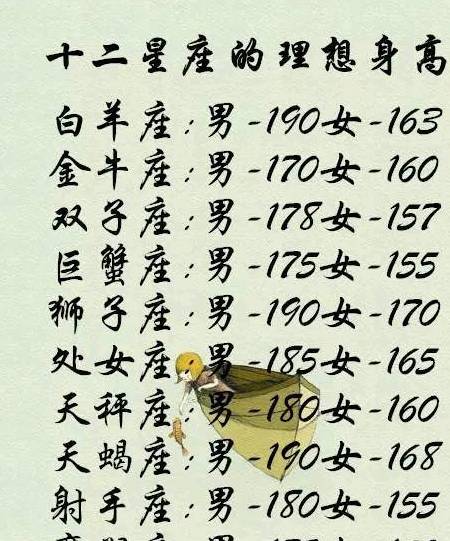 十二星座的理想身高
白羊座:男-190女-163
金牛座:男-170女-160
双子座:男-178女-157
巨蟹座:男-175女-155
狮子座:男-190女-170
处女座:男-185女-165
天秤座:男-180女-160
天蝎座:男-190女-168
射手座:男-180女-155